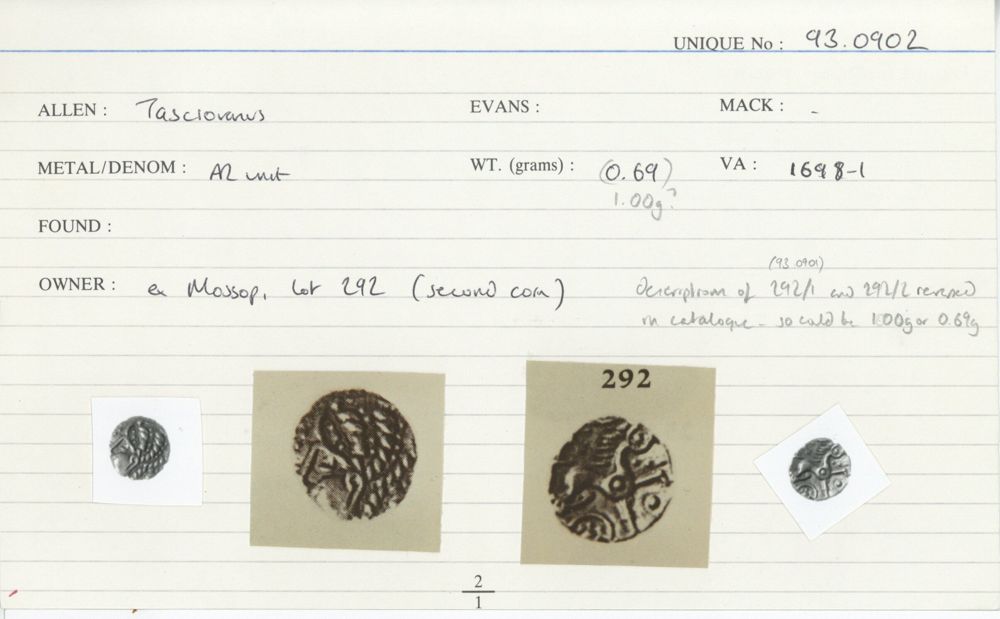 UNIQUE No : 93.0902
ALLEN : Tasciovanus EVANS : MACK : -
METAL/DENOM : AR unit WT. (grams) : (0.69) VA : 1698-1
1.00g?
FOUND :
(93.0901)
OWNER : ex Mossop, lot 292 (second coin) descriptions of 292/1 and 292/2 reversed
in catalogue - so could be 1.00g or 0.69g
292
2
1